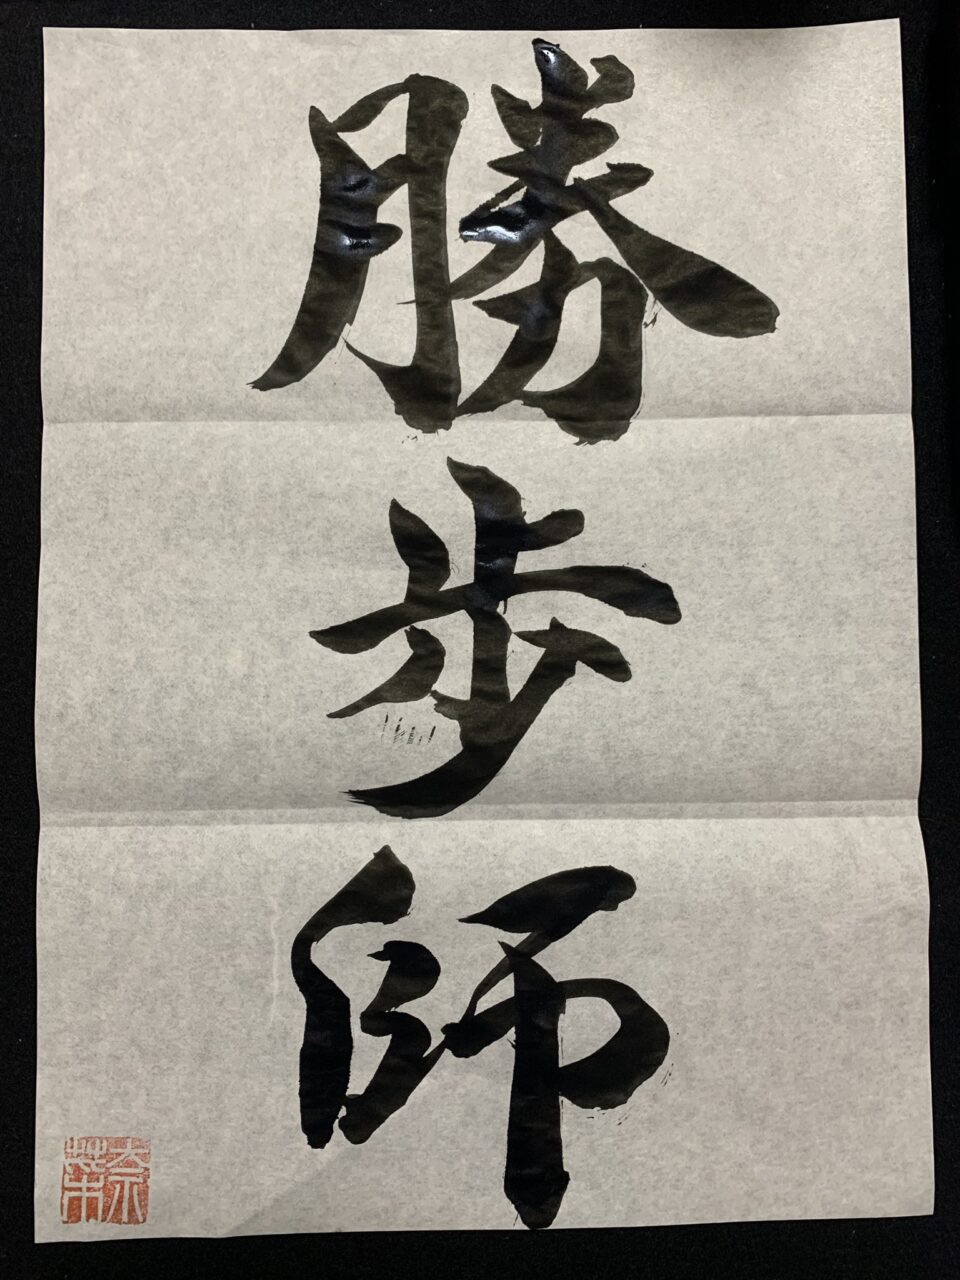 勝
歩
師